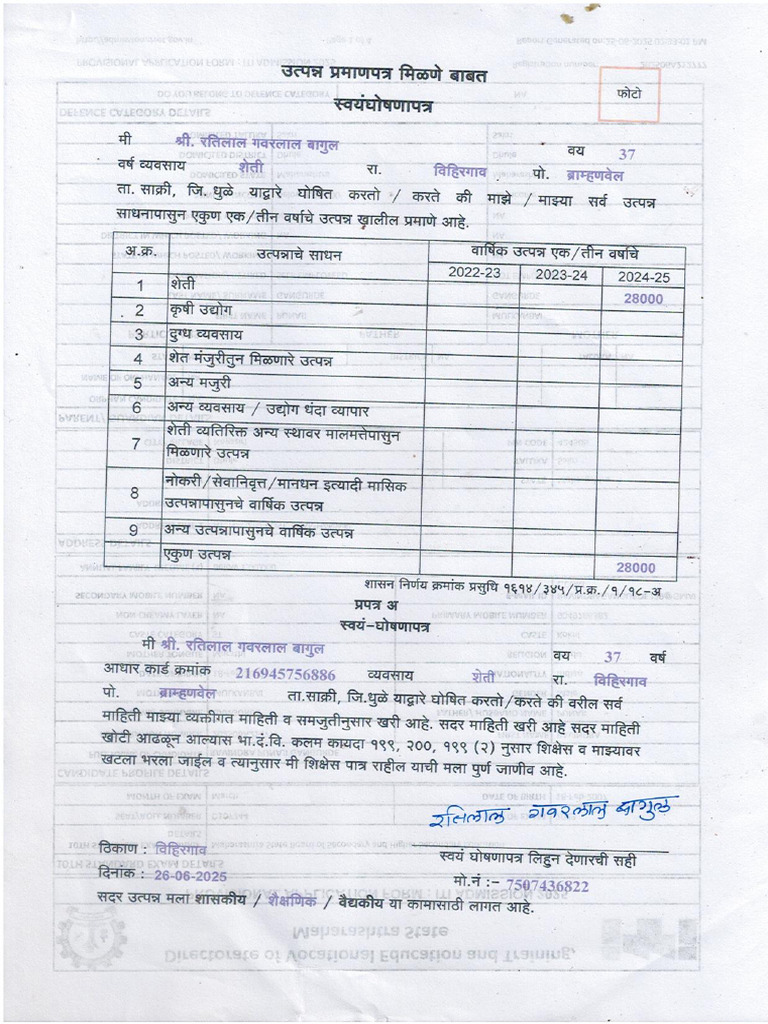 उत्पन्न प्रमाणपत्र मिळणे बाबत
स्वयंघोषणापत्र
फोटो
मी श्री. रतिलाल गवरलाल बागुल वय 37
वर्ष व्यवसाय शेती रा. विहिरगाव पो. ब्राम्हणवेल
ता. साक्री, जि. धुळे याद्वारे घोषित करतो / करते की माझे / माझ्या सर्व उत्पन्न
साधनापासुन एकुण एक/तीन वर्षाचे उत्पन्न खालील प्रमाणे आहे.
अ.क्र. उत्पन्नाचे साधन वार्षिक उत्पन्न एक/तीन वर्षाचे
2022-23 2023-24 2024-25
1 शेती 28000
2 कृषी उद्योग
3 दुग्ध व्यवसाय
4 शेत मंजुरीतुन मिळणारे उत्पन्न
5 अन्य मजुरी
6 अन्य व्यवसाय / उद्योग धंदा व्यापार
7 शेती व्यतिरिक्त अन्य स्थावर मालमत्तेपासुन
मिळणारे उत्पन्न
8 नोकरी/सेवानिवृत्त/मानधन इत्यादी मासिक
उत्पन्नापासुनचे वार्षिक उत्पन्न
9 अन्य उत्पन्नापासुनचे वार्षिक उत्पन्न
एकुण उत्पन्न 28000
शासन निर्णय क्रमांक प्रसुधि १६१४/३४५/प्र.क्र./१/१८-अ
प्रपत्र अ
स्वयं-घोषणापत्र
मी श्री. रतिलाल गवरलाल बागुल वय 37 वर्ष
आधार कार्ड क्रमांक 216945756886 व्यवसाय शेती रा. विहिरगाव
पो. ब्राम्हणवेल ता.साक्री, जि.धुळे याद्वारे घोषित करतो/करते की वरील सर्व
माहिती माझ्या व्यक्तीगत माहिती व समजुतीनुसार खरी आहे. सदर माहिती खरी आहे सदर माहिती
खोटी आढळून आल्यास भा.दं.वि. कलम कायदा १९९, २००, १९९ (२) नुसार शिक्षेस व माझ्यावर
खटला भरला जाईल व त्यानुसार मी शिक्षेस पात्र राहील याची मला पुर्ण जाणीव आहे.
रतिलाल गवरलाल बागुल
ठिकाण : विहिरगाव
स्वयं घोषणापत्र लिहुन देणारची सही
दिनांक : 26-06-2025 मो.नं :- 7507436822
सदर उत्पन्न मला शासकीय / शैक्षणिक / वैद्यकीय या कामासाठी लागत आहे.